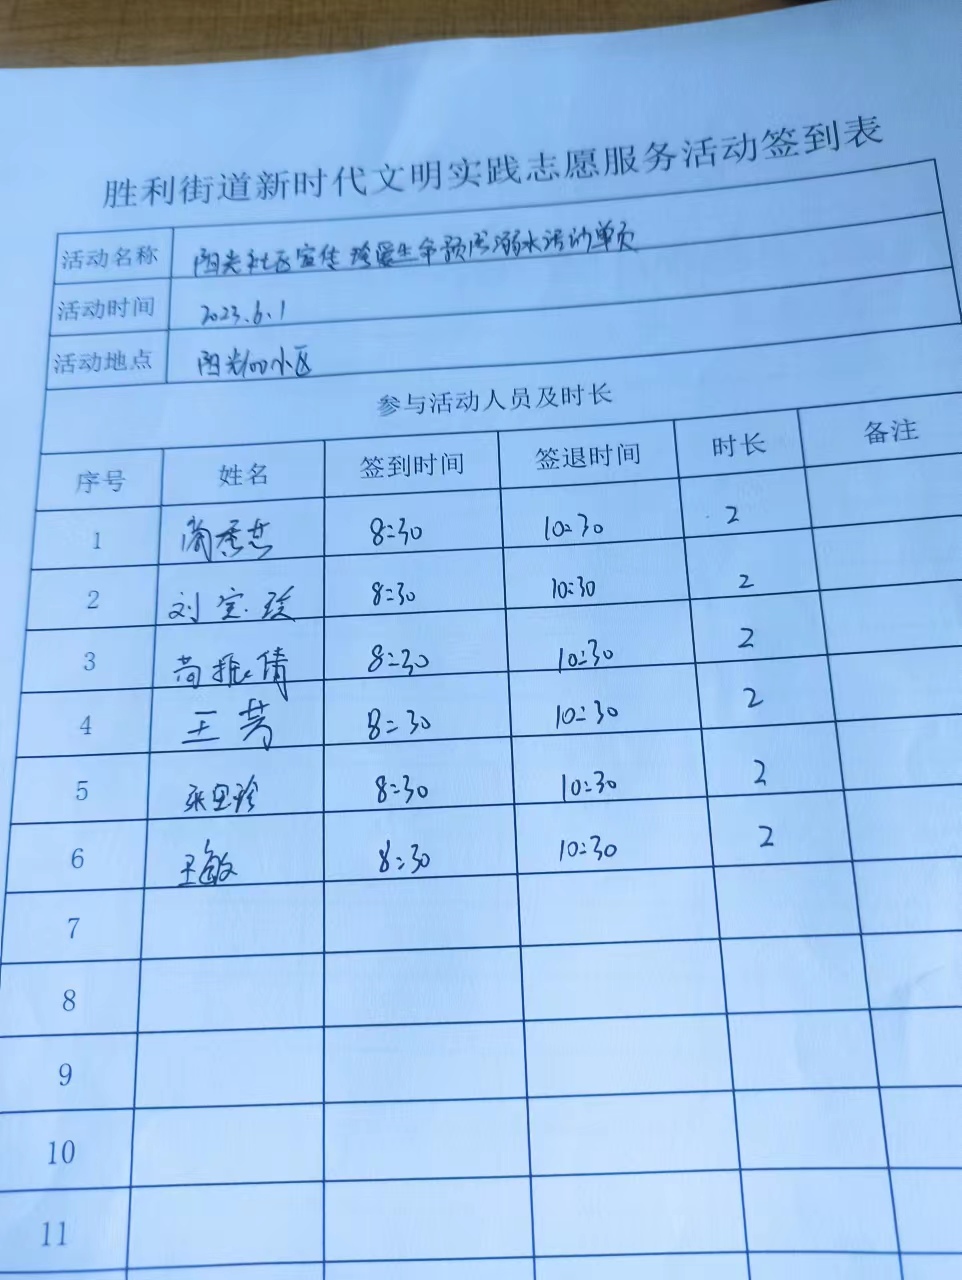 胜利街道新时代文明实践志愿服务活动签到表
活动名称 阳光社区宣传珍爱生命预防溺水活动单页
活动时间 2023.6.1
活动地点 阳光100小区
参与活动人员及时长
序号 姓名 签到时间 签退时间 时长 备注
1 8:30 10:30 2
2 刘宝珍 8:30 10:30 2
3 尚振倩 8:30 10:30 2
4 王芳 8:30 10:30 2
5 张思珍 8:30 10:30 2
6 王敏 8:30 10:30 2
7
8
9
10
11